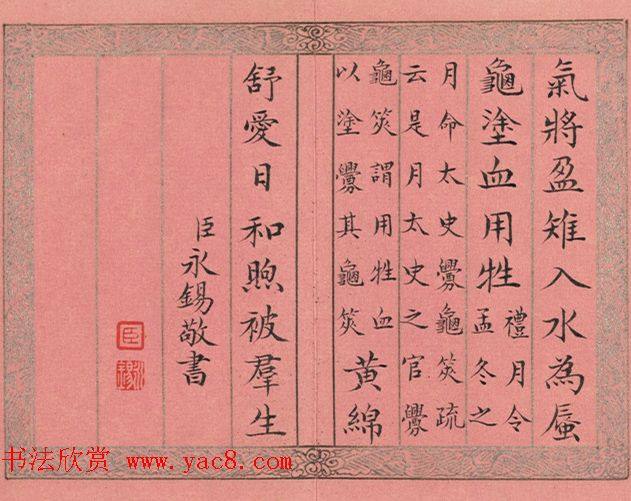 氣將盈雉入水為蜃
龜塗血用牲禮月令
孟冬之
月命太史釁龜筴疏
云是月太史之官釁
龜筴謂用牲血
以塗釁其龜筴
黃綿
舒愛日和煦被羣生
臣永錫敬書
臣
永錫
书法欣赏 www.yac8.com